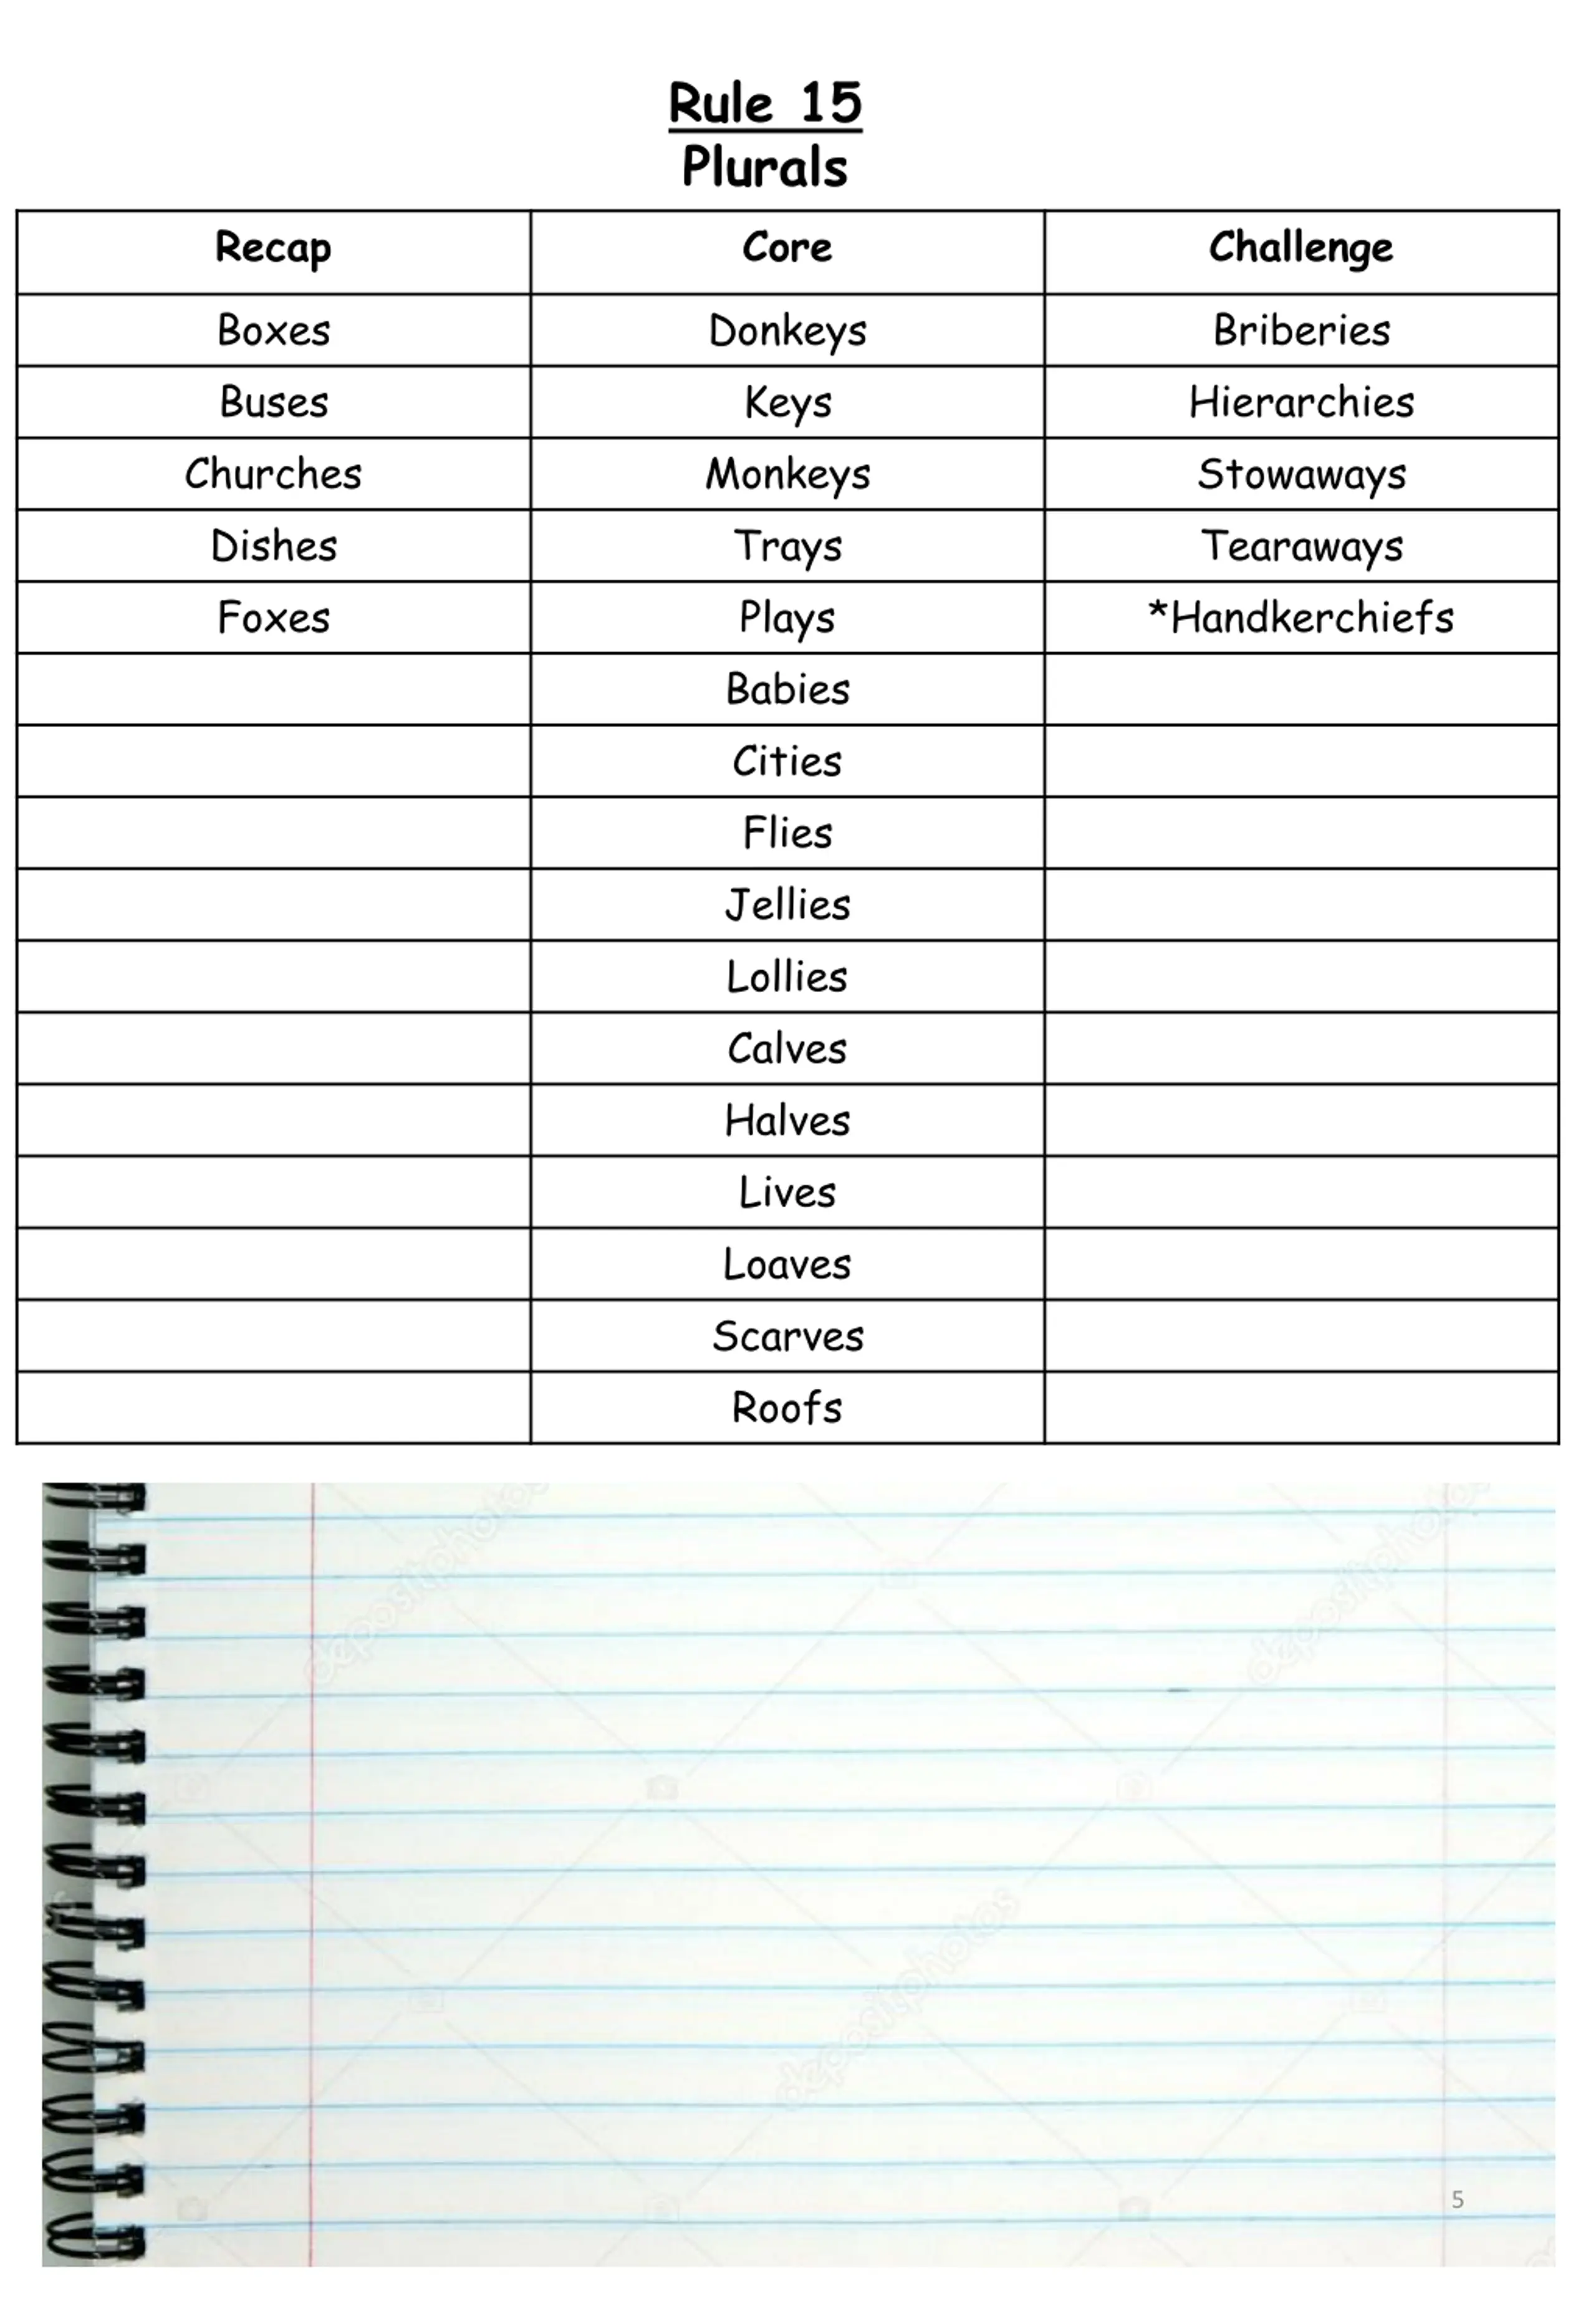 Rule 15
Plurals
Recap Core Challenge
Boxes Donkeys Briberies
Buses Keys Hierarchies
Churches Monkeys Stowaways
Dishes Trays Tearaways
Foxes Plays *Handkerchiefs
Babies
Cities
Flies
Jellies
Lollies
Calves
Halves
Lives
Loaves
Scarves
Roofs
depositphotos
depositphotos
depositphotos
5